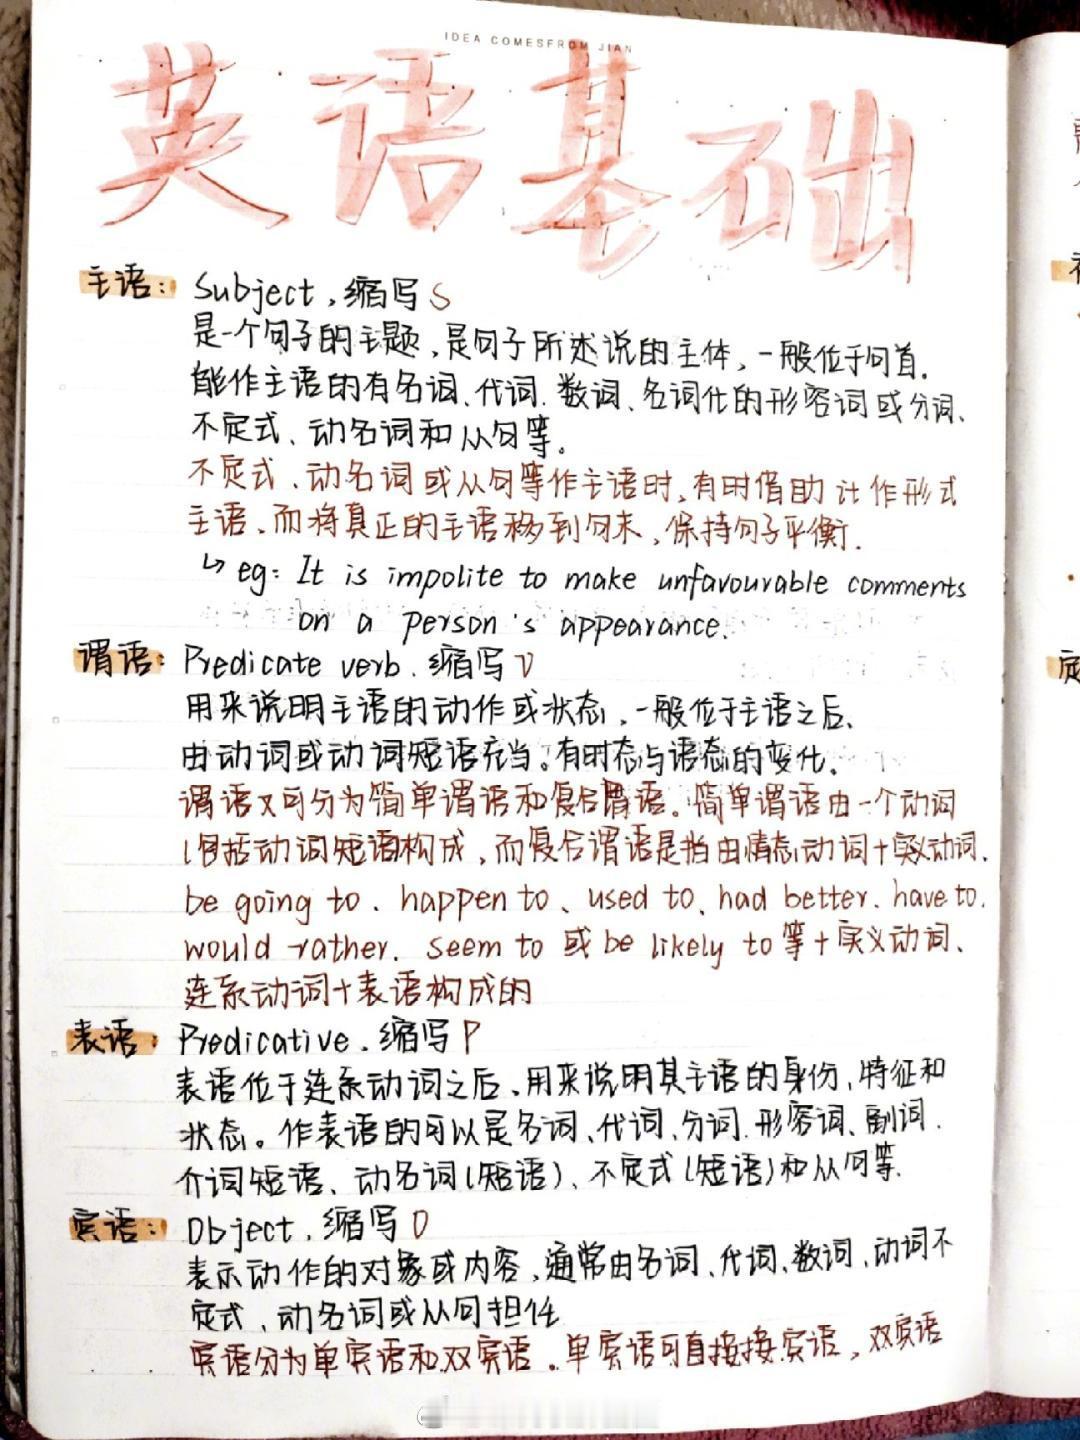 IDEA COMESFROM JIAN
英语基础
主语: Subject,缩写S
是一个句子的主题,是句子所述说的主体,一般位于句首.
能作主语的有名词、代词.数词、名词化的形容词或分词、
不定式、动名词和从句等。
不定式、动名词或从句等作主语时,有时借助 it 作形式
主语、而将真正的主语移到句末,保持句子平衡.
↳ eg: It is impolite to make unfavourable comments
on a person's appearance.
谓语: Predicate verb.缩写V
用来说明主语的动作或状态,一般位于主语之后、
由动词或动词短语充当。有时态与语态的变化.
谓语又可分为简单谓语和复合谓语。简单谓语由一个动词
(包括动词短语构成,而复合谓语是指由情态动词+实义动词.
be going to、happen to、used to、had better.have to.
would rather. seem to 或 be likely to等+实义动词、
连系动词+表语构成的
表语: Predicative.缩写P
表语位于连系动词之后、用来说明其主语的身份,特征和
状态。作表语的可以是名词、代词、分词.形容词、副词.
介词短语、动名词(短语)、不定式(短语)和从句等.
宾语: Object.缩写O
表示动作的对象或内容,通常由名词、代词、数词、动词不
定式、动名词或从句担任
宾语分为单宾语和双宾语.单宾语可直接接宾语,双宾语
定